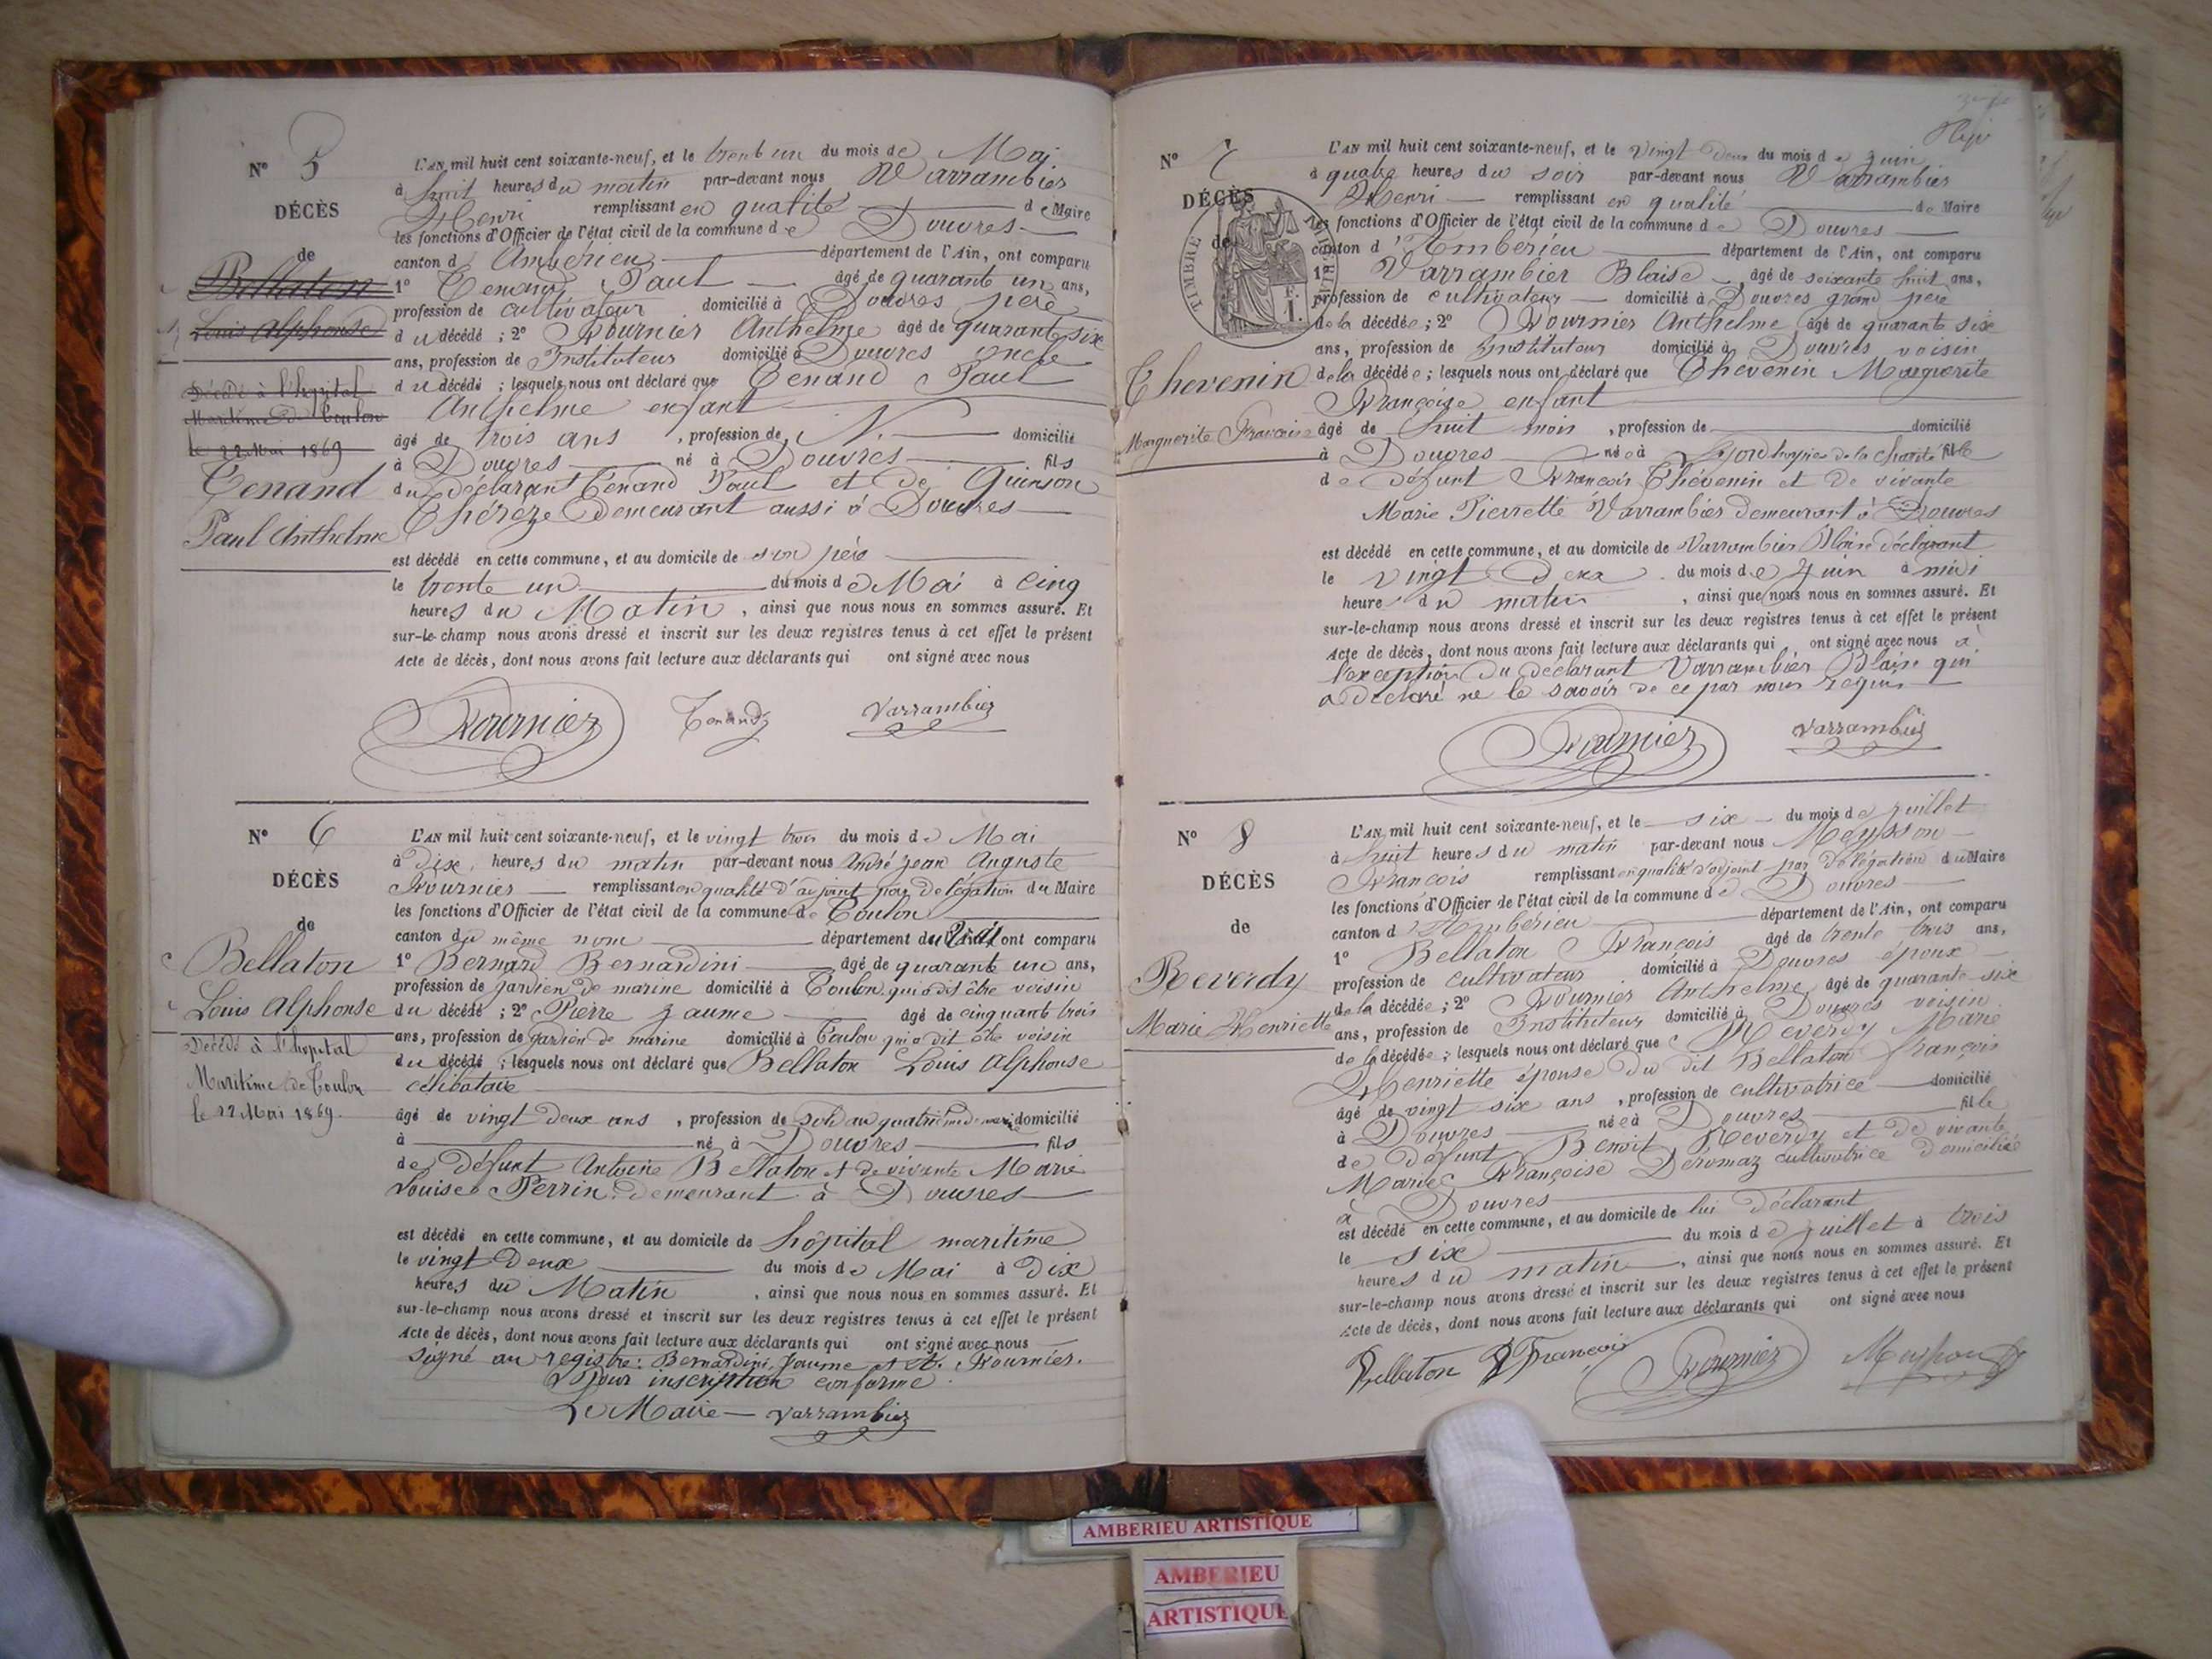 N° 5
DÉCÈS
de
Bellaton
Louis Alphonse
Décédé à l'hopital
Maritime de Toulon
le 22 Mai 1869
Tenand
Paul Anthelme
L'AN mil huit cent soixante-neuf, et le trent un du mois de Mai
à huit heures du matin par-devant nous Varrambier
Henri remplissant en qualité de Maire
les fonctions d'Officier de l'état civil de la commune de Douvres
canton d'Ambérieu département de l'Ain, ont comparu
1° Tenand Paul âgé de quarante un ans,
profession de cultivateur domicilié à Douvres père
du décédé ; 2° Fournier Anthelme âgé de quarante six
ans, profession de Instituteur domicilié à Douvres oncle
du décédé ; lesquels nous ont déclaré que Tenand Paul
Anthelme enfant
âgé de trois ans , profession de N. domicilié
à Douvres né à Douvres fils
du déclarant Tenand Paul et de Quinson
Thérèze demeurant aussi à Douvres
est décédé en cette commune, et au domicile de son père
le trente un du mois de Mai à cinq
heures du Matin , ainsi que nous nous en sommes assuré. Et
sur-le-champ nous avons dressé et inscrit sur les deux registres tenus à cet effet le présent
Acte de décès, dont nous avons fait lecture aux déclarants qui ont signé avec nous
Fournier Tenand Varrambier
N° 6
DÉCÈS
de
Bellaton
Louis Alphonse
Décédé à l'hopital
Maritime de Toulon
le 22 Mai 1869.
L'AN mil huit cent soixante-neuf, et le vingt trois du mois de Mai
à dix heures du matin par-devant nous André Jean Auguste
Fournier remplissant en qualité d'adjoint par délégation du Maire
les fonctions d'Officier de l'état civil de la commune de Toulon
canton du même nom département du Var ont comparu
1° Bernard Bernardini âgé de quarante un ans,
profession de gardien de marine domicilié à Toulon qui a dit être voisin
du décédé ; 2° Pierre Jaume âgé de cinquante trois
ans, profession de gardien de marine domicilié à Toulon qui a dit être voisin
du décédé ; lesquels nous ont déclaré que Bellaton Louis Alphonse
célibataire
âgé de vingt deux ans , profession de soldat au quatrième de marine domicilié
à né à Douvres fils
de défunt Antoine Bellaton et de vivante Marie
Louise Perrin demeurant à Douvres
est décédé en cette commune, et au domicile de hôpital maritime
le vingt deux du mois de Mai à dix
heures du Matin , ainsi que nous nous en sommes assuré. Et
sur-le-champ nous avons dressé et inscrit sur les deux registres tenus à cet effet le présent
Acte de décès, dont nous avons fait lecture aux déclarants qui ont signé avec nous
signé au registre : Bernardini, Jaume et A. Fournier.
Pour inscription conforme
Le Maire Varrambier
N° 7
DÉCÈS
de
TIMBRE IMPÉRIAL
Thevenin
Marguerite Francoise
L'AN mil huit cent soixante-neuf, et le vingt deux du mois de Juin
à quatre heures du soir par-devant nous Varrambier
Henri remplissant en qualité de Maire
les fonctions d'Officier de l'état civil de la commune de Douvres
canton d'Ambérieu département de l'Ain, ont comparu
1° Varrambier Blaise âgé de soixante huit ans,
profession de cultivateur domicilié à Douvres grand père
de la décédée ; 2° Fournier Anthelme âgé de quarante six
ans, profession de Instituteur domicilié à Douvres voisin
de la décédée ; lesquels nous ont déclaré que Thevenin Marguerite
Françoise enfant
âgé de huit mois , profession de domicilié
à Douvres née à Lyon hospice de la Charité fille
de défunt François Thévenin et de vivante
Marie Pierrette Varrambier demeurant à Douvres
est décédé en cette commune, et au domicile de Varrambier Blaise déclarant
le vingt deux du mois de Juin à midi
heure du matin , ainsi que nous nous en sommes assuré. Et
sur-le-champ nous avons dressé et inscrit sur les deux registres tenus à cet effet le présent
Acte de décès, dont nous avons fait lecture aux déclarants qui ont signé avec nous à
l'exception du déclarant Varrambier Blaise qui
a déclaré ne le savoir de ce par nous requis
Fournier Varrambier
N° 8
DÉCÈS
de
Reverdy
Marie Henriette
L'AN mil huit cent soixante-neuf, et le six du mois de juillet
à huit heures du matin par-devant nous Meysson
François remplissant en qualité d'adjoint par délégation du Maire
les fonctions d'Officier de l'état civil de la commune de Douvres
canton d'Ambérieu département de l'Ain, ont comparu
1° Bellaton François âgé de trente trois ans,
profession de cultivateur domicilié à Douvres époux
de la décédée ; 2° Fournier Anthelme âgé de quarante six
ans, profession de Instituteur domicilié à Douvres voisin
de la décédée ; lesquels nous ont déclaré que Reverdy Marie
Henriette épouse du dit Bellaton françois
âgé de vingt six ans , profession de cultivatrice domicilié
à Douvres née à Douvres fille
de défunt Benoit Reverdy et de vivante
Marie Françoise Déromaz cultivatrice domiciliée
à Douvres
est décédé en cette commune, et au domicile de lui déclarant
le six du mois de juillet à trois
heures du matin , ainsi que nous nous en sommes assuré. Et
sur-le-champ nous avons dressé et inscrit sur les deux registres tenus à cet effet le présent
Acte de décès, dont nous avons fait lecture aux déclarants qui ont signé avec nous
Bellaton François Fournier Meysson
AMBERIEU ARTISTIQUE
AMBERIEU
ARTISTIQUE